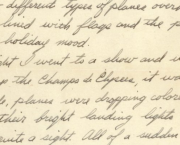 different types of planes over
lined with flags and the p
holiday mood.
ght I went to a show and w
p the Champs de Elysees, it wa
ts, planes were dropping colore
their bright landing lights
quite a sight. All of a sudden